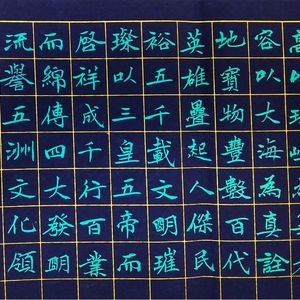 容以大海為真詮
地寶物豐數百代
英雄疊起人傑民
裕五千載文明璀
璨以三皇五帝而
啓祥成千行百業
而綿傳四大發明
流譽五洲文化領